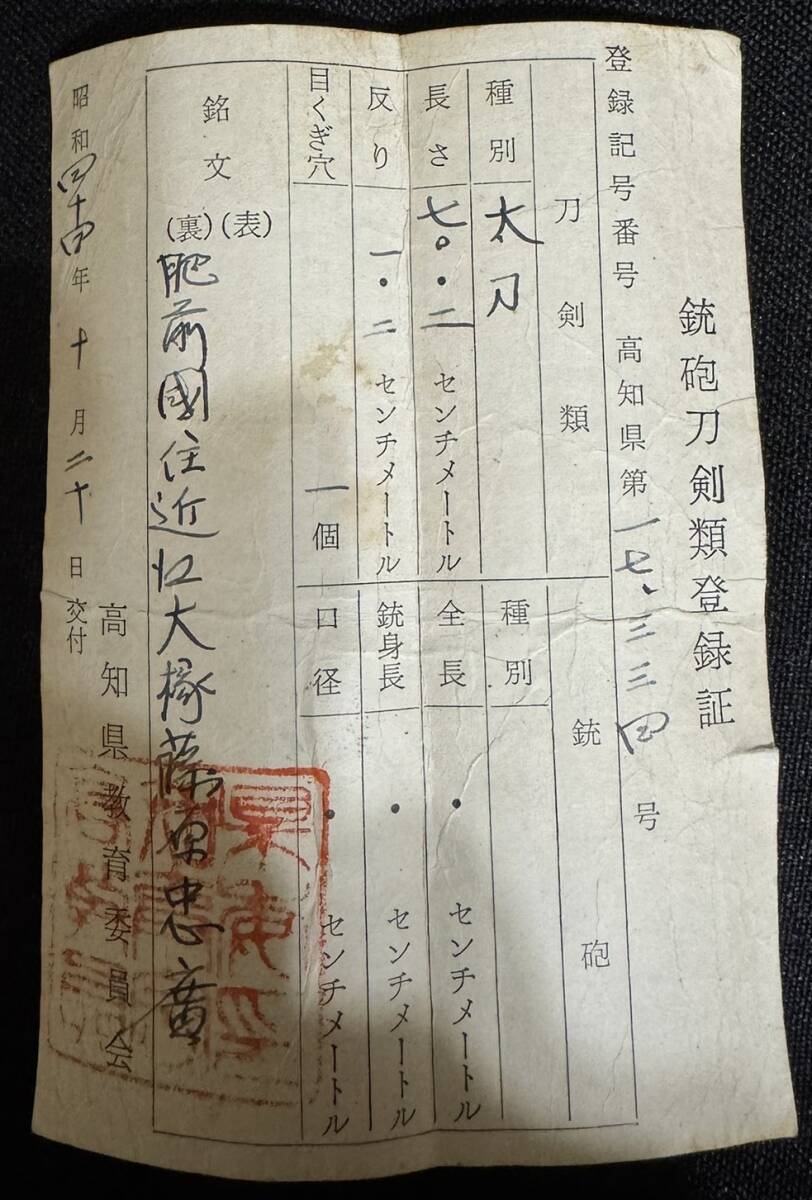 銃砲刀剣類登録証
登録記号番号 高知県第一七、三三四号
刀剣類
種別 太刀
長さ 七〇・二センチメートル
反り 一・二センチメートル
目くぎ穴 一個
銃砲
種別
全長 ・ センチメートル
銃身長 ・ センチメートル
口径 ・ センチメートル
銘文 (表)
(裏) 肥前國住近江大掾藤原忠廣
高知県教育委員会
昭和四十四年十月二十日交付